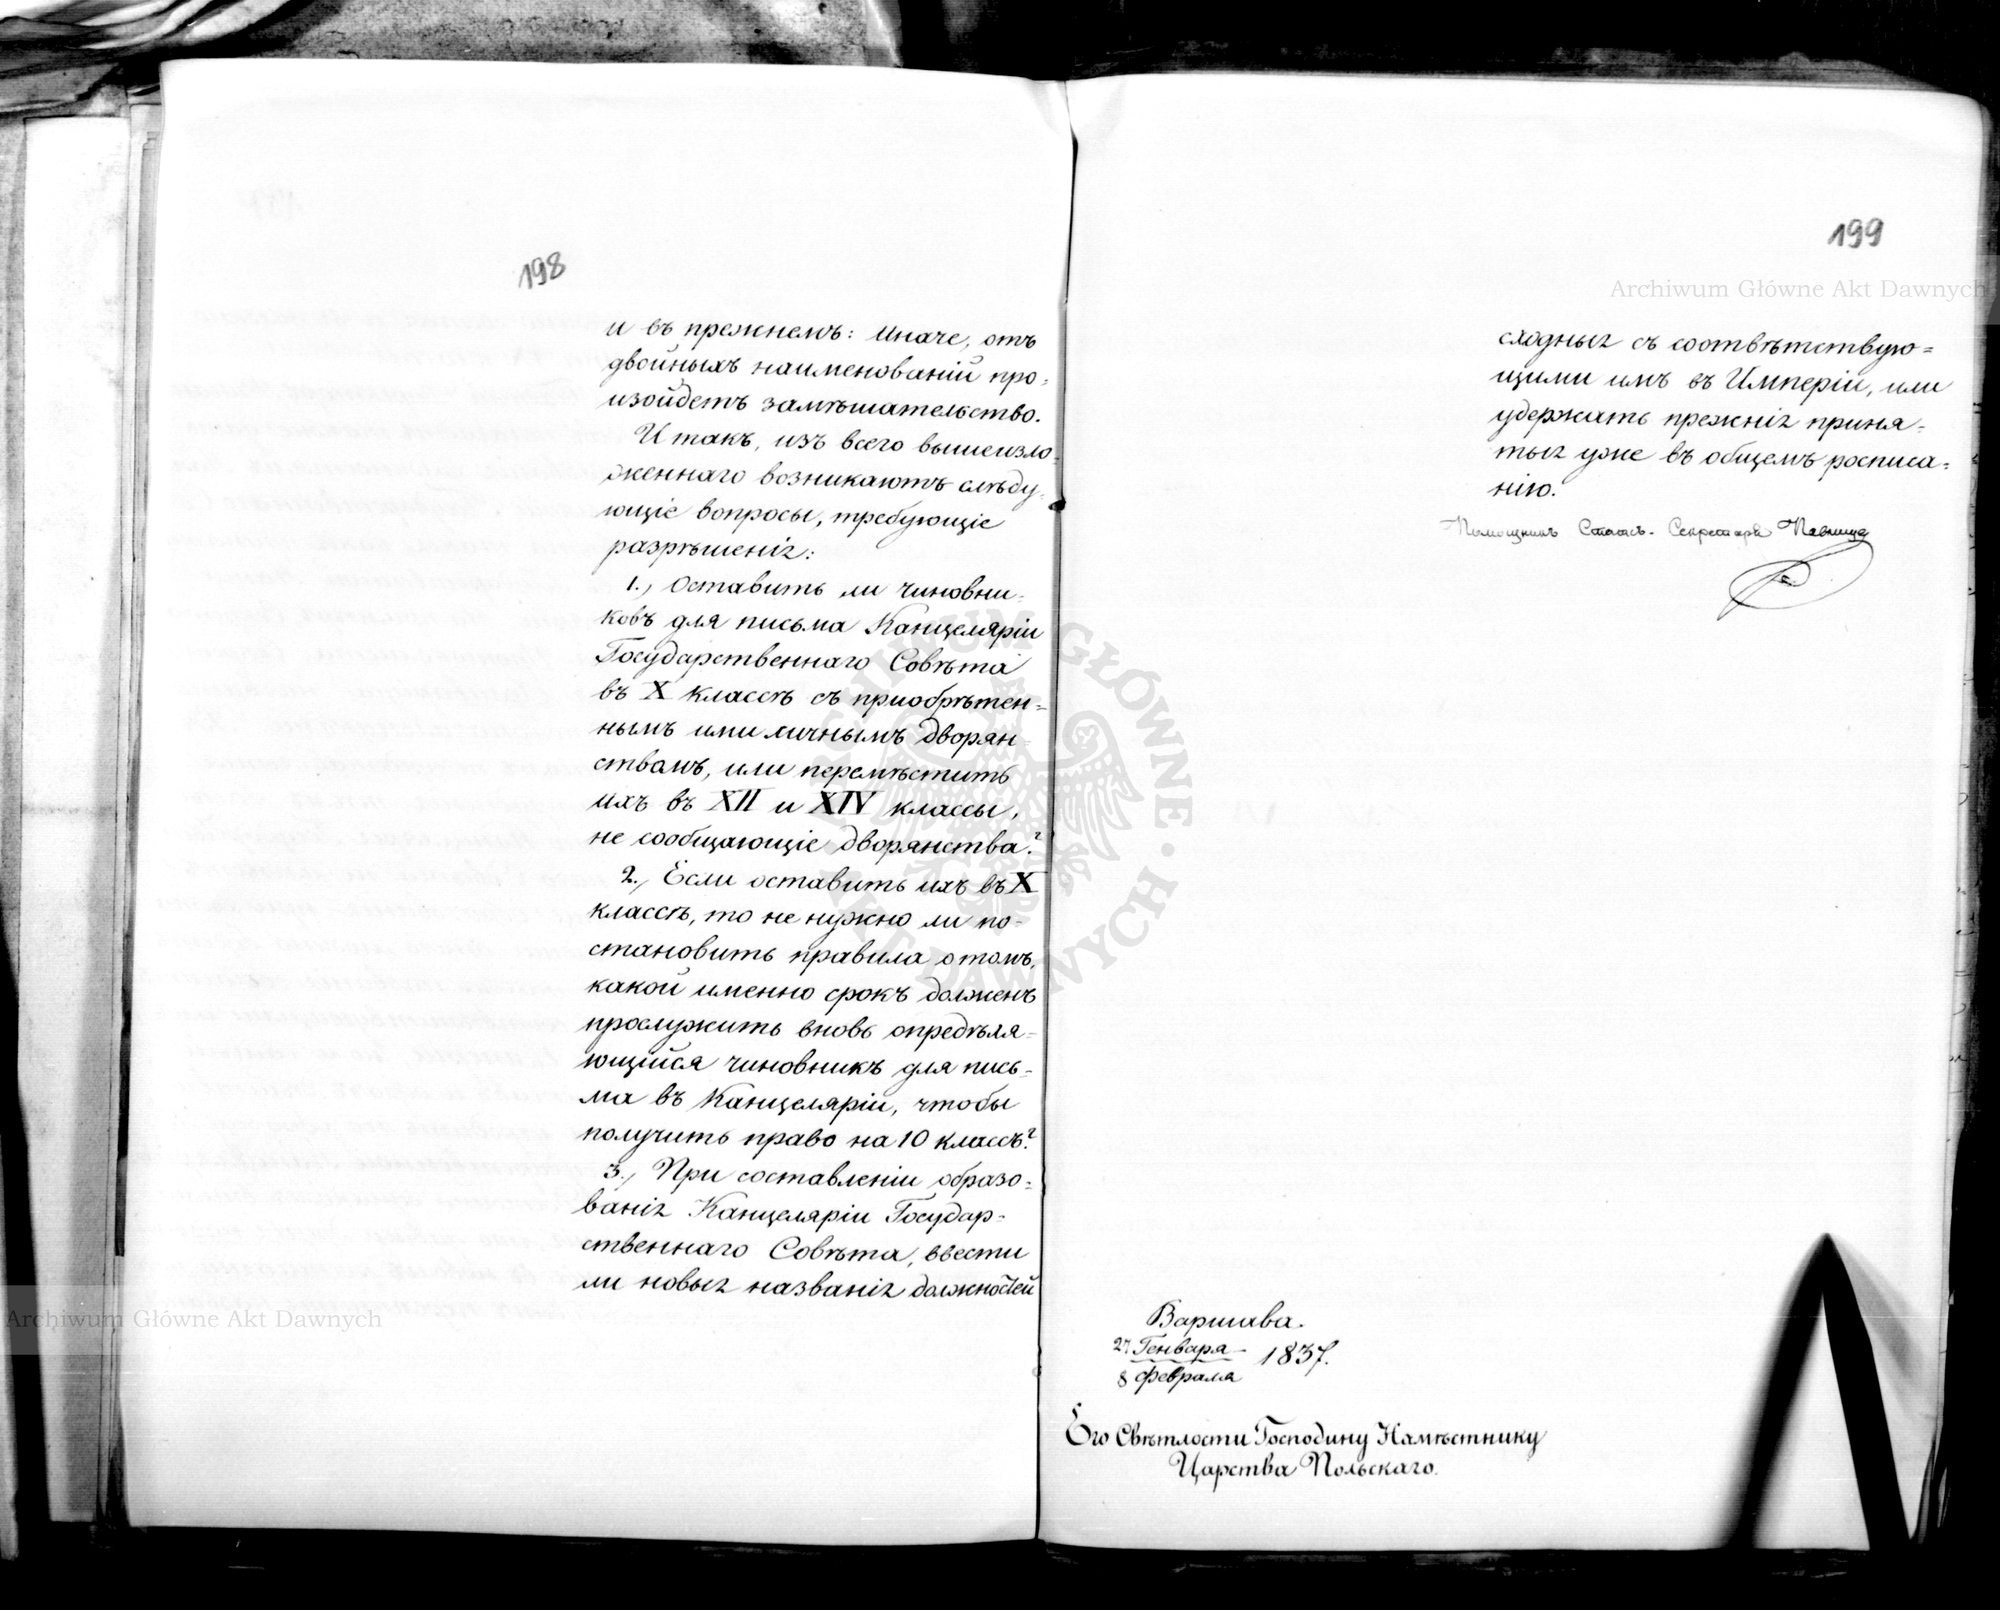 198
и въ прежнемъ: иначе, отъ
двойныхъ наименованій про=
изойдетъ замѣшательство.
И такъ, изъ всего вышеизло=
женнаго возникаютъ слѣду=
ющіе вопросы, требующіе
разрѣшенія:
1., Оставить ли чиновни=
ковъ для письма Канцеляріи
Государственнаго Совѣта
въ X классѣ съ приобрѣтен=
нымъ ими личнымъ дворян=
ствомъ, или перемѣстить
ихъ въ XII и XIV классы,
не сообщающіе дворянства?
2., Если оставить ихъ въ X
классѣ, то не нужно ли по=
становить правила о томъ,
какой именно срокъ долженъ
прослужить вновь опредѣля=
ющійся чиновникъ для пись=
ма въ Канцеляріи, чтобы
получить право на 10 классъ?
3., При составленіи образо=
ванія Канцеляріи Государ=
ственнаго Совѣта, ввести
ли новыя названія должностей
199
сходныя съ соотвѣтствую=
щими имъ въ Имперіи, или
удержать прежнія приня=
тыя уже въ общемъ росписа=
нію.
Помощникъ Статсъ-Секретаря
Варшава.
27 Генваря
8 Февраля
1837.
Его Свѣтлости Господину Намѣстнику
Царства Польскаго.
Archiwum Główne Akt Dawnych
Archiwum Główne Akt Dawnych
ARCHIWUM GŁÓWNE AKT DAWNYCH